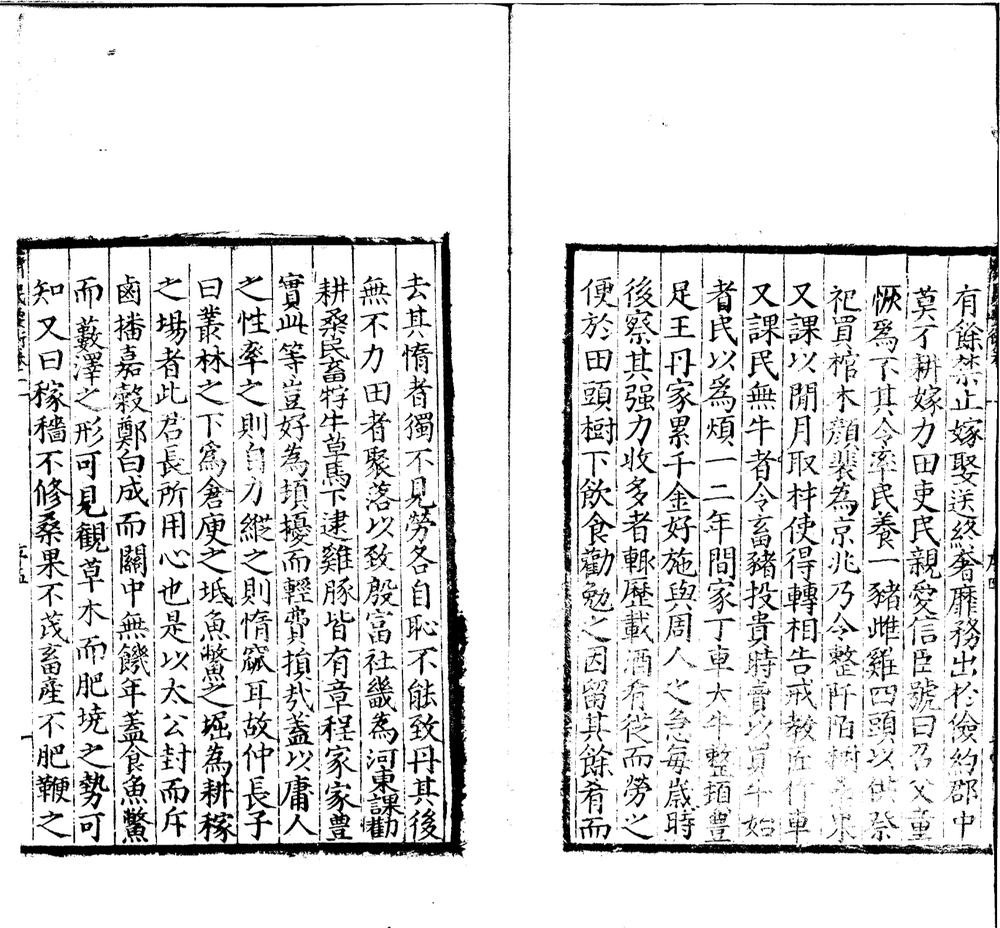 有餘禁止嫁娶送終奢靡務出於儉約郡中
莫不耕嫁力田吏民親愛信臣號曰召父童
恢爲不其令率民養一豬雌雞四頭以供祭
祀買棺木顔裴為京兆乃令整阡陌樹桑果
又課以閒月取材使得轉相告戒教匠作車
又課民無牛者令畜豬投貴時賣以買牛始
者民以爲煩一二年間家丁車大牛整頓豐
足王丹家累千金好施與周人之急每歲時
後察其强力收多者輒歷載酒肴從而勞之
便於田頭樹下飲食勸勉之因留其餘肴而
去其惰者獨不見勞各自恥不能致丹其後
無不力田者聚落以致殷富社畿為河東課勸
耕桑民畜牸牛草馬下逮雞豚皆有章程家家豊
實此等豈好為煩擾而輕費損㢤蓋以庸人
之性率之則自力縱之則惰窳耳故仲長子
曰叢林之下爲倉庾之坻魚鱉之堀為耕稼
之場者此君長所用心也是以太公封而斥
鹵播嘉穀鄭白成而關中無饑年蓋食魚鱉
而藪澤之形可見觀草木而肥墝之勢可
知又曰稼穡不修桑果不茂畜産不肥鞭之